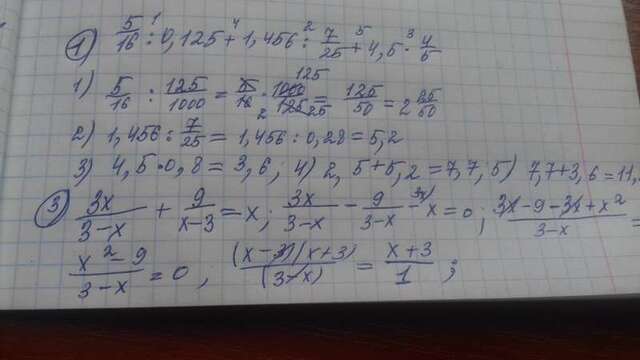 1) 5/16 : 0,125 + 1,456 : 7/25 + 4,5 · 4/5
1) 5/16 : 125/1000 = 5/16 · 1000/125 = 125/50 = 2 25/50
2) 1,456 : 7/25 = 1,456 : 0,28 = 5,2
3) 4,5 · 0,8 = 3,6; 4) 2,5 + 5,2 = 7,7; 5) 7,7 + 3,6 = 11,
3) 3x/(3-x) + 9/(x-3) = x; 3x/(3-x) - 9/(3-x) - x = 0; (3x - 9 - 3x + x²)/(3-x) =
(x² - 9)/(3-x) = 0, (x-3)(x+3)/(3-x) = (x+3)/1;